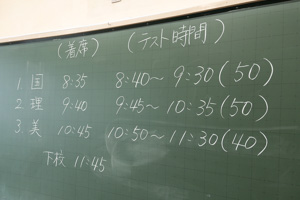 (着席) (テスト時間)
1. 国 8:35 8:40～9:30(50)
2. 理 9:40 9:45～10:35(50)
3. 美 10:45 10:50～11:30(40)
下校 11:45